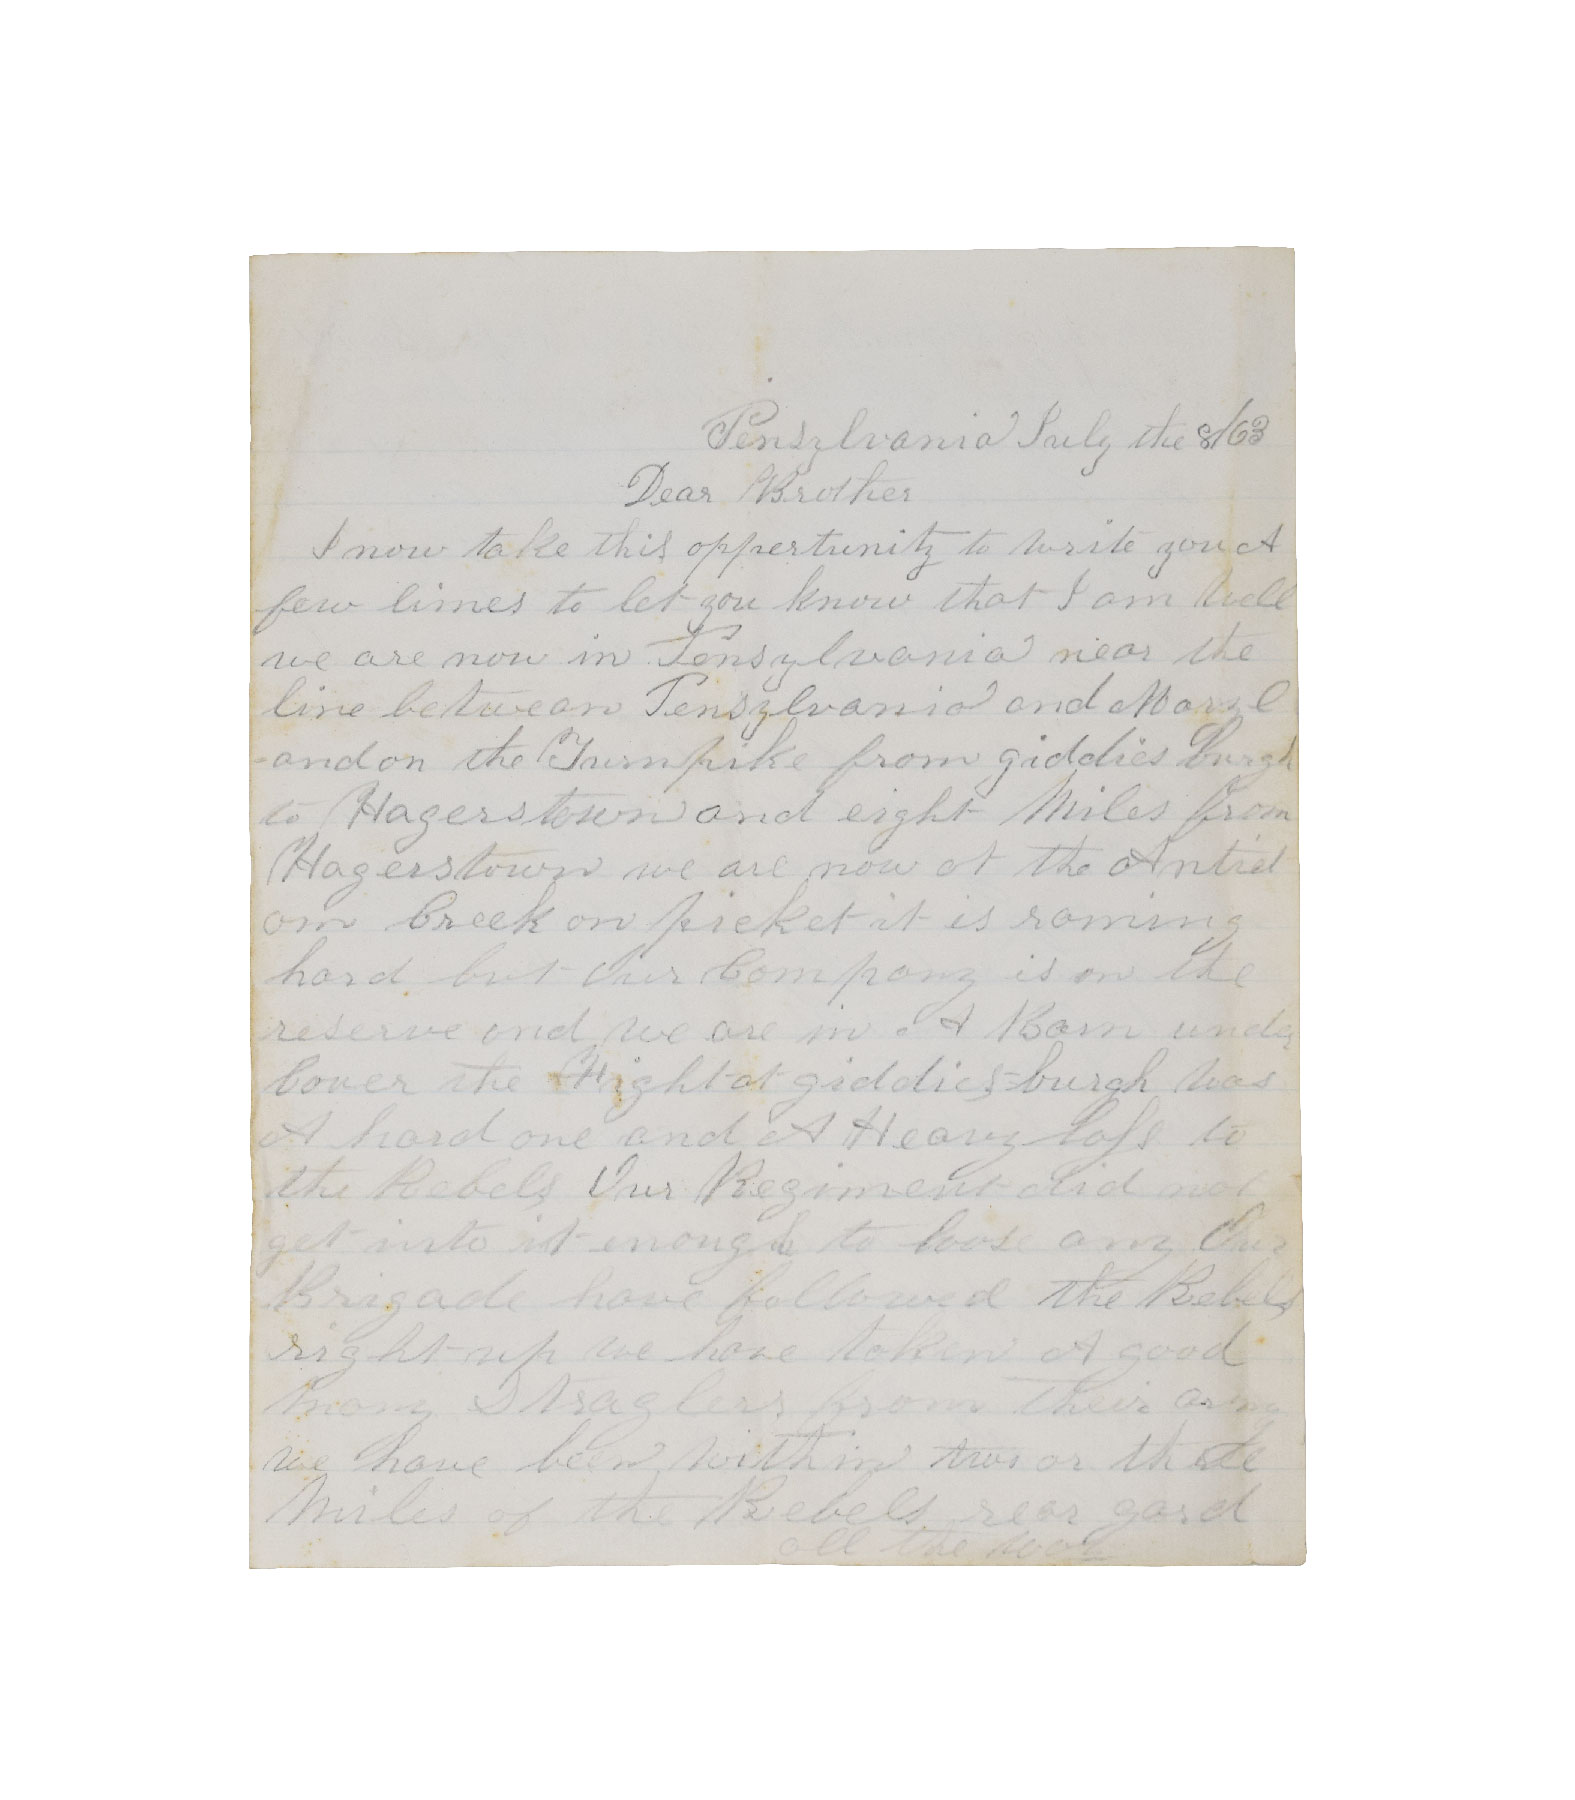 Pensylvania July the 8/63
Dear Brother
I now take this oppertunity to write you A
few limes to let you know that I am Well
we are now in Pensylvania near the
line betwean Pensylvania and Maryl
-and on the Turnpike from giddies burgh
to Hagerstown and eight Miles from
Hagerstown we are now at the Antied
om Creek on picket it is raming
hard but Our Company is on the
reserve and we are in A Barn under
Cover the Fight at giddies-burgh was
A hard one and A Heavy loss to
the Rebels Our Regiment did not
get into it enough to loose any Our
Brigade have followed the Rebels
right up we have taken A good
many Straglers from their army
we have been within two or three
Miles of the Rebels rear gard
all the way